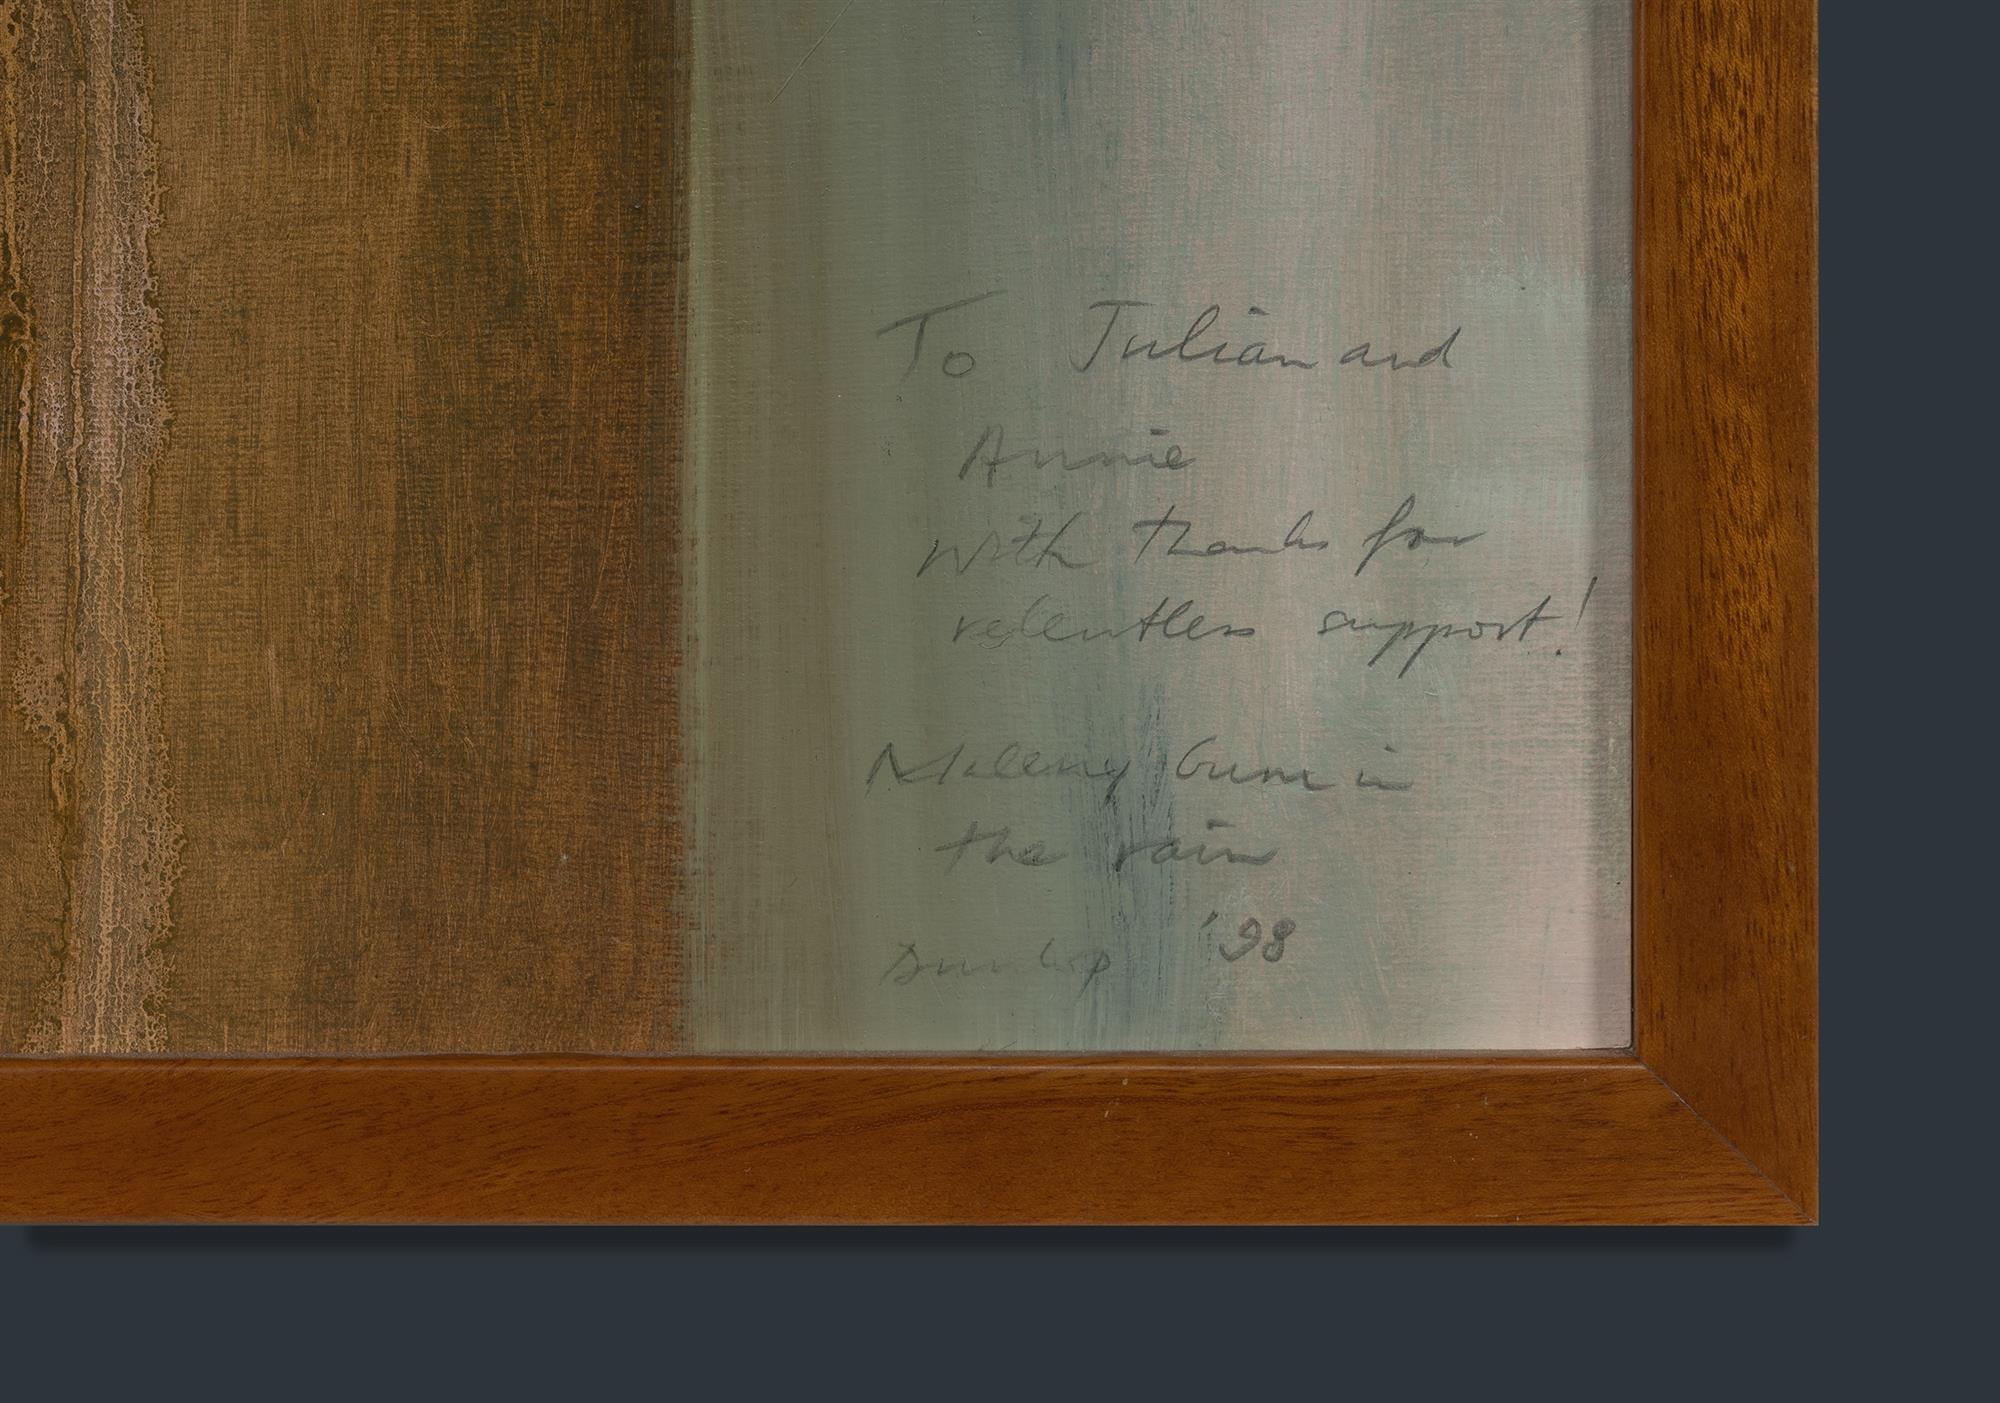 To Julian and
Annie
With thanks for
relentless support!
Maleny Gum in
the rain
Dunlop '98